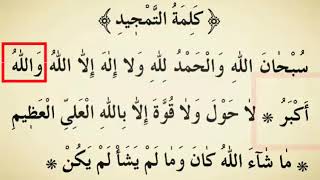 ﴿ كَلِمَةُ التَّمْجِيدِ ﴾
سُبْحَانَ اللهِ وَالْحَمْدُ لِلهِ وَلَا إِلٰهَ إِلَّا اللهُ وَاللهُ
أَكْبَرُ ❋ لَا حَوْلَ وَلَا قُوَّةَ إِلَّا بِاللهِ الْعَلِيِّ الْعَظِيمِ
❋ مَا شَآءَ اللهُ كَانَ وَمَا لَمْ يَشَأْ لَمْ يَكُنْ ❋